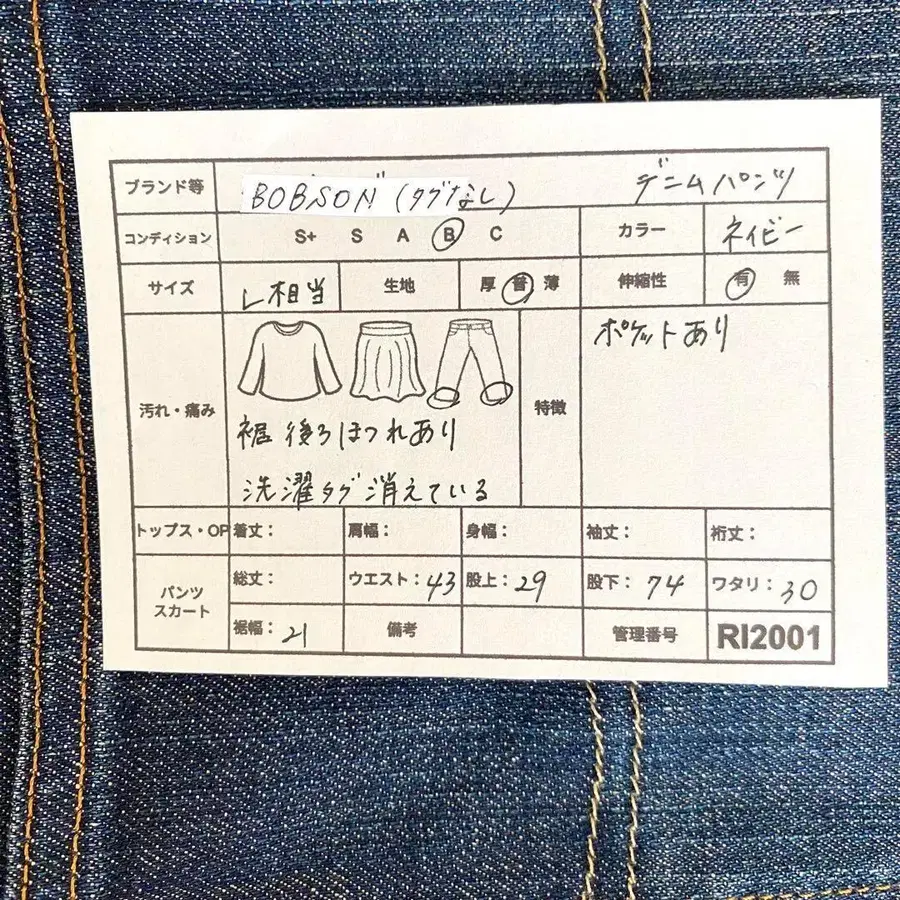 ブランド等 BOBSON (タグなし) デニムパンツ
コンディション S+ S A B C カラー ネイビー
サイズ L相当 生地 厚 普 薄 伸縮性 有 無
汚れ・痛み 特徴 ポケットあり
裾 後ろほつれあり
洗濯タグ消えている
トップス・OP 着丈: 肩幅: 身幅: 袖丈: 裄丈:
パンツ スカート 総丈: ウエスト:43 股上:29 股下:74 ワタリ:30
裾幅:21 備考 管理番号 RI2001